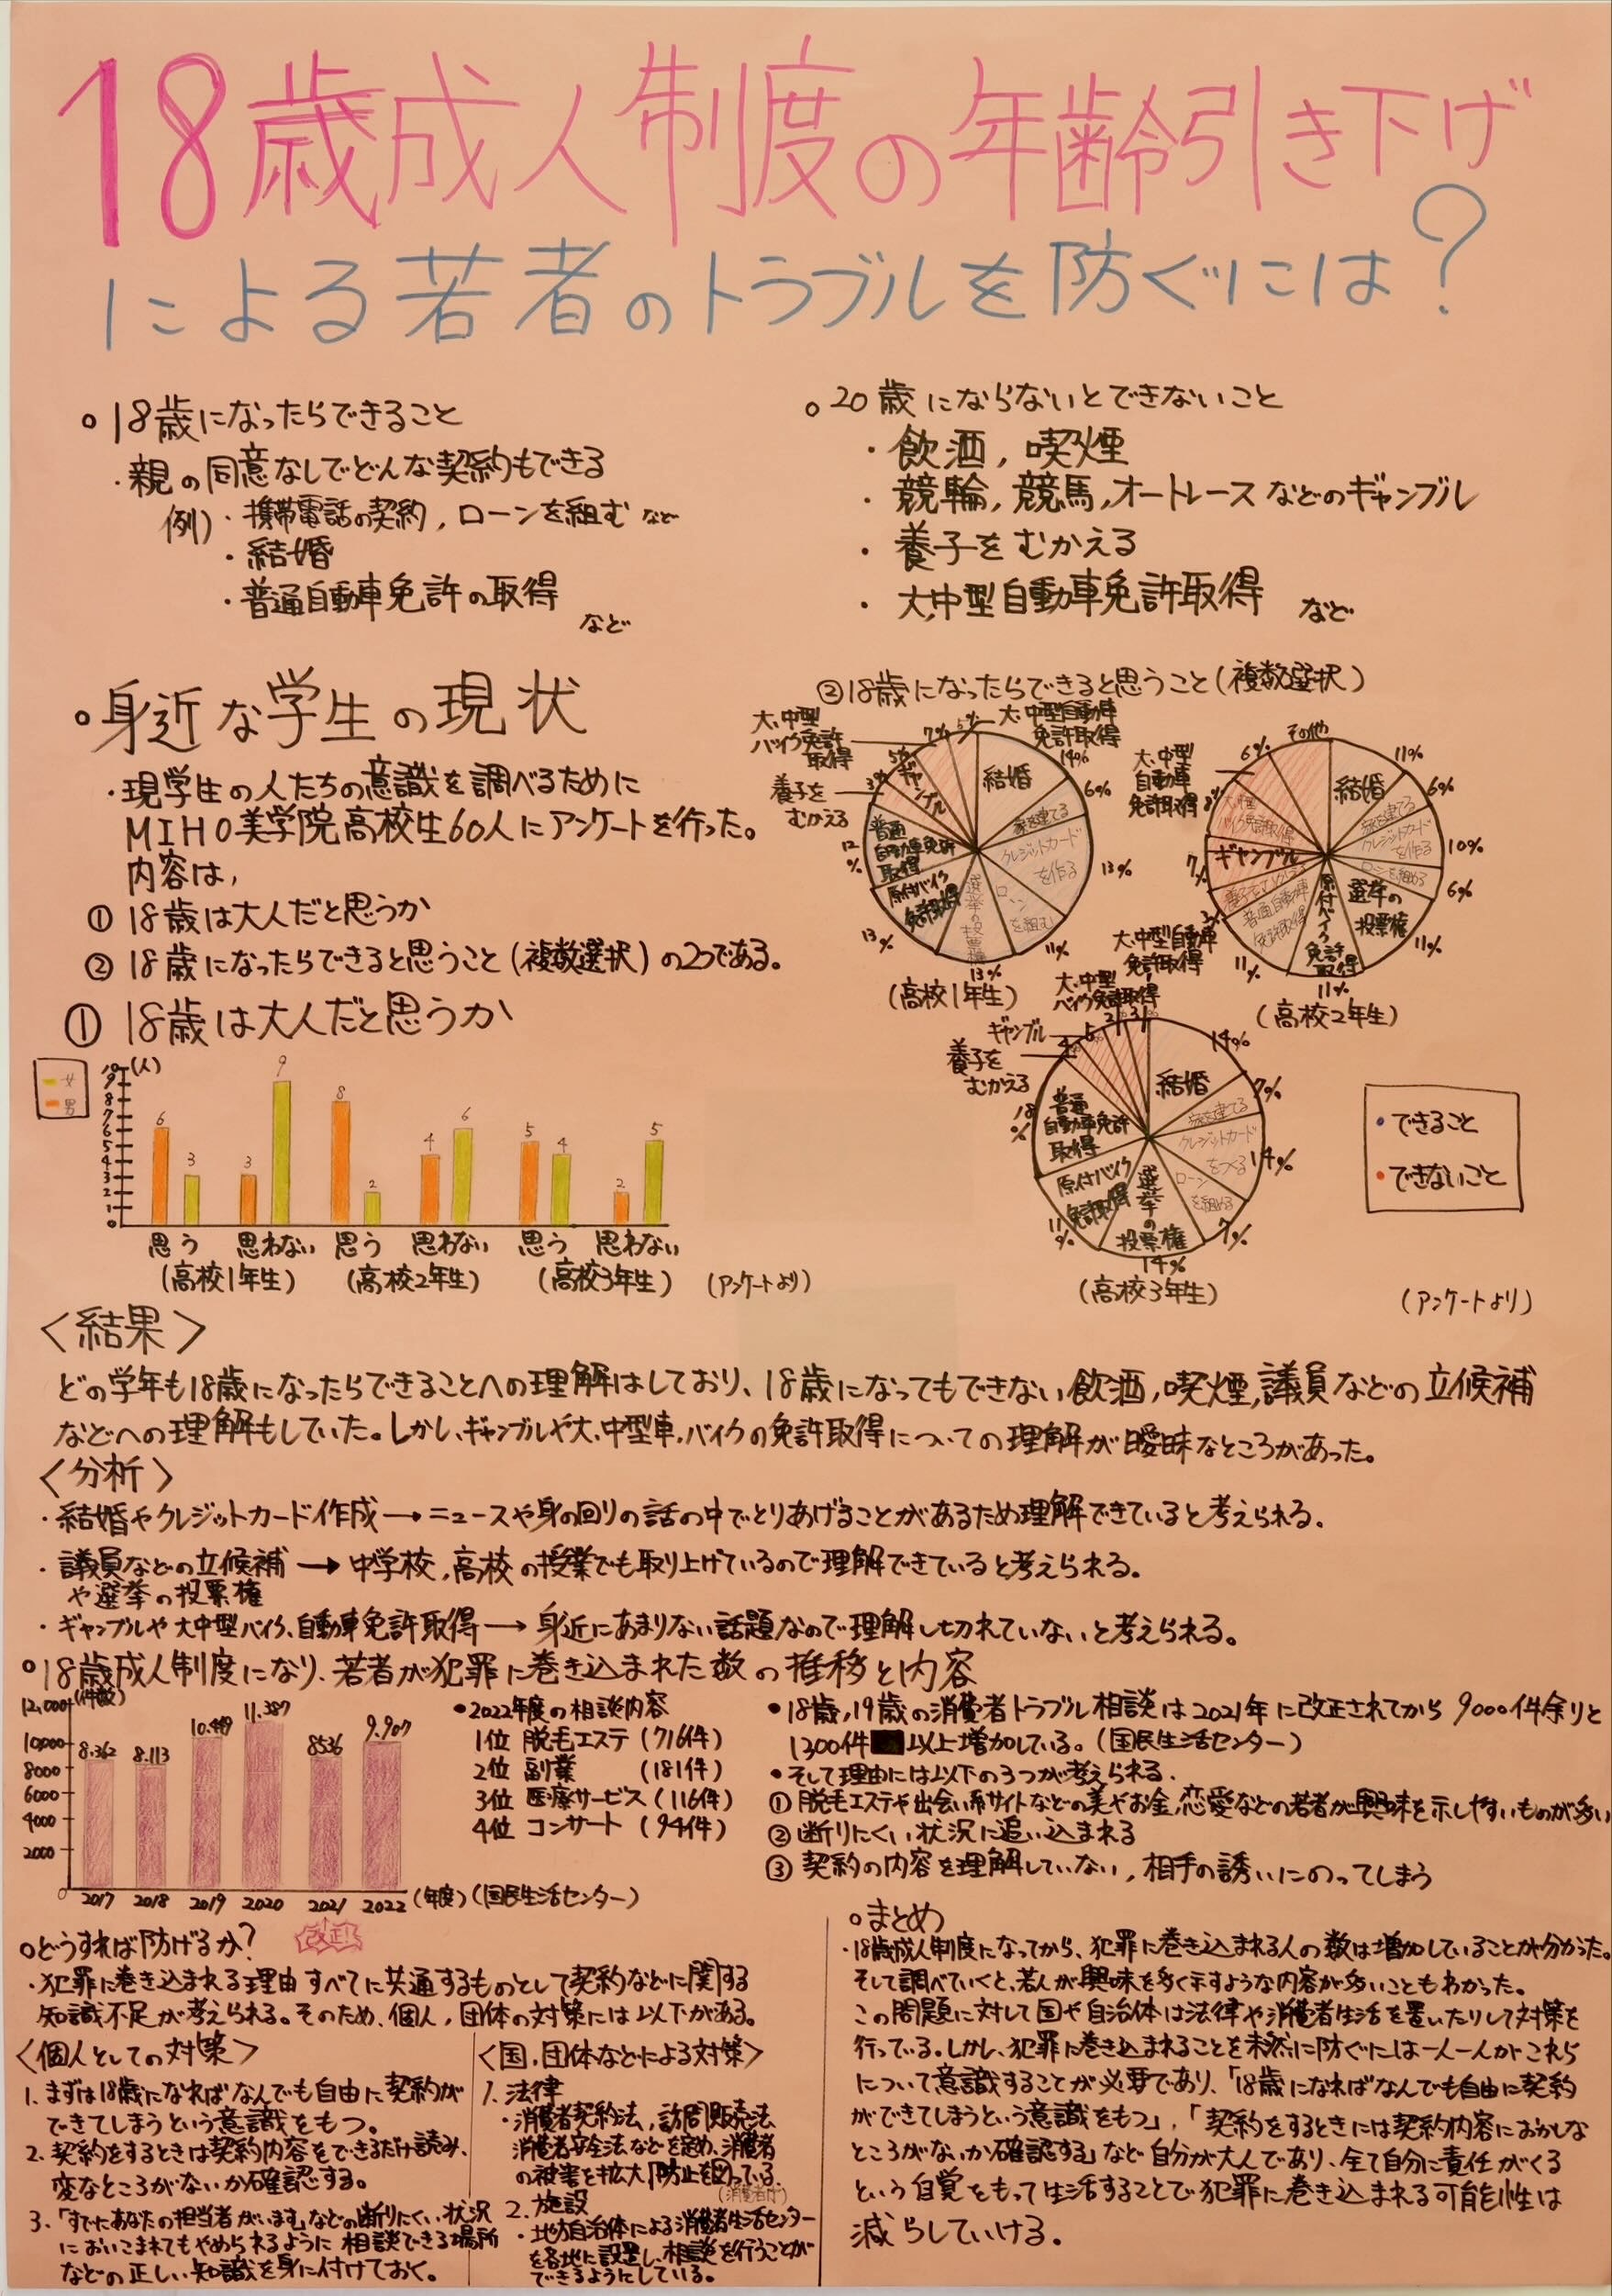 18歳成人制度の年齢引き下げ
による若者のトラブルを防ぐには？
○18歳になったらできること
・親の同意なしでどんな契約もできる
例）・携帯電話の契約，ローンを組む など
・結婚
・普通自動車免許の取得
など
○20歳にならないとできないこと
・飲酒，喫煙
・競輪，競馬，オートレースなどのギャンブル
・養子をむかえる
・大，中型自動車免許取得 など
○身近な学生の現状
・現学生の人たちの意識を調べるために
MIHO美学院高校生60人にアンケートを行った。
内容は，
① 18歳は大人だと思うか
② 18歳になったらできると思うこと（複数選択）の2つである。
① 18歳は大人だと思うか
女
男
（人）
10
9
8
7
6
5
4
3
2
1
0
6 3 3 9 8 2 4 6 5 4 2 5
思う 思わない 思う 思わない 思う 思わない
（高校1年生） （高校2年生） （高校3年生） （アンケートより）
②18歳になったらできると思うこと（複数選択）
大、中型
バイク免許
取得
7% 5%
大、中型自動車
免許取得
14%
5%
ギャンブル
結婚
3%
養子を
むかえる
6%
家を建てる
12%
普通
自動車免許
取得
クレジットカード
を作る
13%
原付バイク
免許取得
13%
選挙の投票権
13%
ローン
を組む
11%
（高校1年生）
その他
6%
11%
大、中型
自動車
免許取得 8%
結婚
6%
家を建てる
大、中型
バイク免許取得
クレジットカード
を作る
10%
7%
ギャンブル
ローンを組める
6%
養子をむかえる
3%
選挙の
投票権
11%
普通自動車
免許取得
11%
原付バイク
免許
取得
11%
（高校2年生）
大、中型自動車
免許取得
大、中型
バイク免許取得
ギャンブル
養子を
むかえる
4% 5% 3% 3%
14%
結婚
7%
家を建てる
普通
自動車免許
取得
クレジットカード
をつくる
14%
原付バイク
免許取得
11%
選挙の
投票権
14%
ローン
を組める
7%
（高校3年生）
・できること
・できないこと
（アンケートより）
〈結果〉
どの学年も18歳になったらできることへの理解はしており、18歳になってもできない飲酒，喫煙，議員などの立候補
などへの理解もしていた。しかし、ギャンブルや大、中型車，バイクの免許取得についての理解が曖昧なところがあった。
〈分析〉
・結婚やクレジットカード作成→ニュースや身の回りの話の中でとりあげることがあるため理解できていると考えられる。
・議員などの立候補→中学校，高校の授業でも取り上げているので理解できていると考えられる。
や選挙の投票権
・ギャンブルや大中型バイク、自動車免許取得→身近にあまりない話題なので理解し切れていないと考えられる。
○18歳成人制度になり、若者が犯罪に巻き込まれた数の推移と内容
12,000（件数）
10,000
8000
6000
4000
2000
0
8,362 8,113 10,449 11,387 8536 9,907
2017 2018 2019 2020 2021 2022 （年度）（国民生活センター）
改正！
・2022年度の相談内容
1位 脱毛エステ（716件）
2位 副業 （181件）
3位 医療サービス（116件）
4位 コンサート （94件）
・18歳，19歳の消費者トラブル相談は2021年に改正されてから9000件余りと
1300件以上増加している。（国民生活センター）
・そして理由には以下の3つが考えられる．
① 脱毛エステや出会い系サイトなどの美やお金，恋愛などの若者が興味を示しやすいものが多い
② 断りにくい状況に追い込まれる
③ 契約の内容を理解していない，相手の誘いにのってしまう
○どうすれば防げるか？
・犯罪に巻き込まれる理由すべてに共通するものとして契約などに関する
知識不足が考えられる。そのため、個人，団体の対策には以下がある。
〈個人としての対策〉
1. まずは18歳になればなんでも自由に契約が
できてしまうという意識をもつ。
2. 契約をするときは契約内容をできるだけ読み、
変なところがないか確認する。
3. 「すでにあなたの担当者がいます」などの断りにくい状況
においこまれてもやめられるように 相談できる場所
などの正しい知識を身に付けておく。
〈国，団体などによる対策〉
1. 法律
・消費者契約法，訪問販売法
消費者安全法などを定め、消費者
の被害を拡大防止を図っている．
（消費者庁）
2. 施設
・地方自治体による消費者生活センター
を各地に設置し、相談を行うことが
できるようにしている。
○まとめ
・18歳成人制度になってから、犯罪に巻き込まれる人の数は増加していることが分かった。
そして調べていくと、若人が興味を多く示すような内容が多いこともわかった。
この問題に対して国や自治体は法律や消費者生活を置いたりして対策を
行っている。しかし、犯罪に巻き込まれることを未然に防ぐには一人一人がこれら
について意識することが必要であり、「18歳になればなんでも自由に契約
ができてしまうという意識をもつ」，「契約をするときには契約内容におかしな
ところがないか確認する」など自分が大人であり、全て自分に責任がくる
という自覚をもって生活することで犯罪に巻き込まれる可能性は
減らしていける．